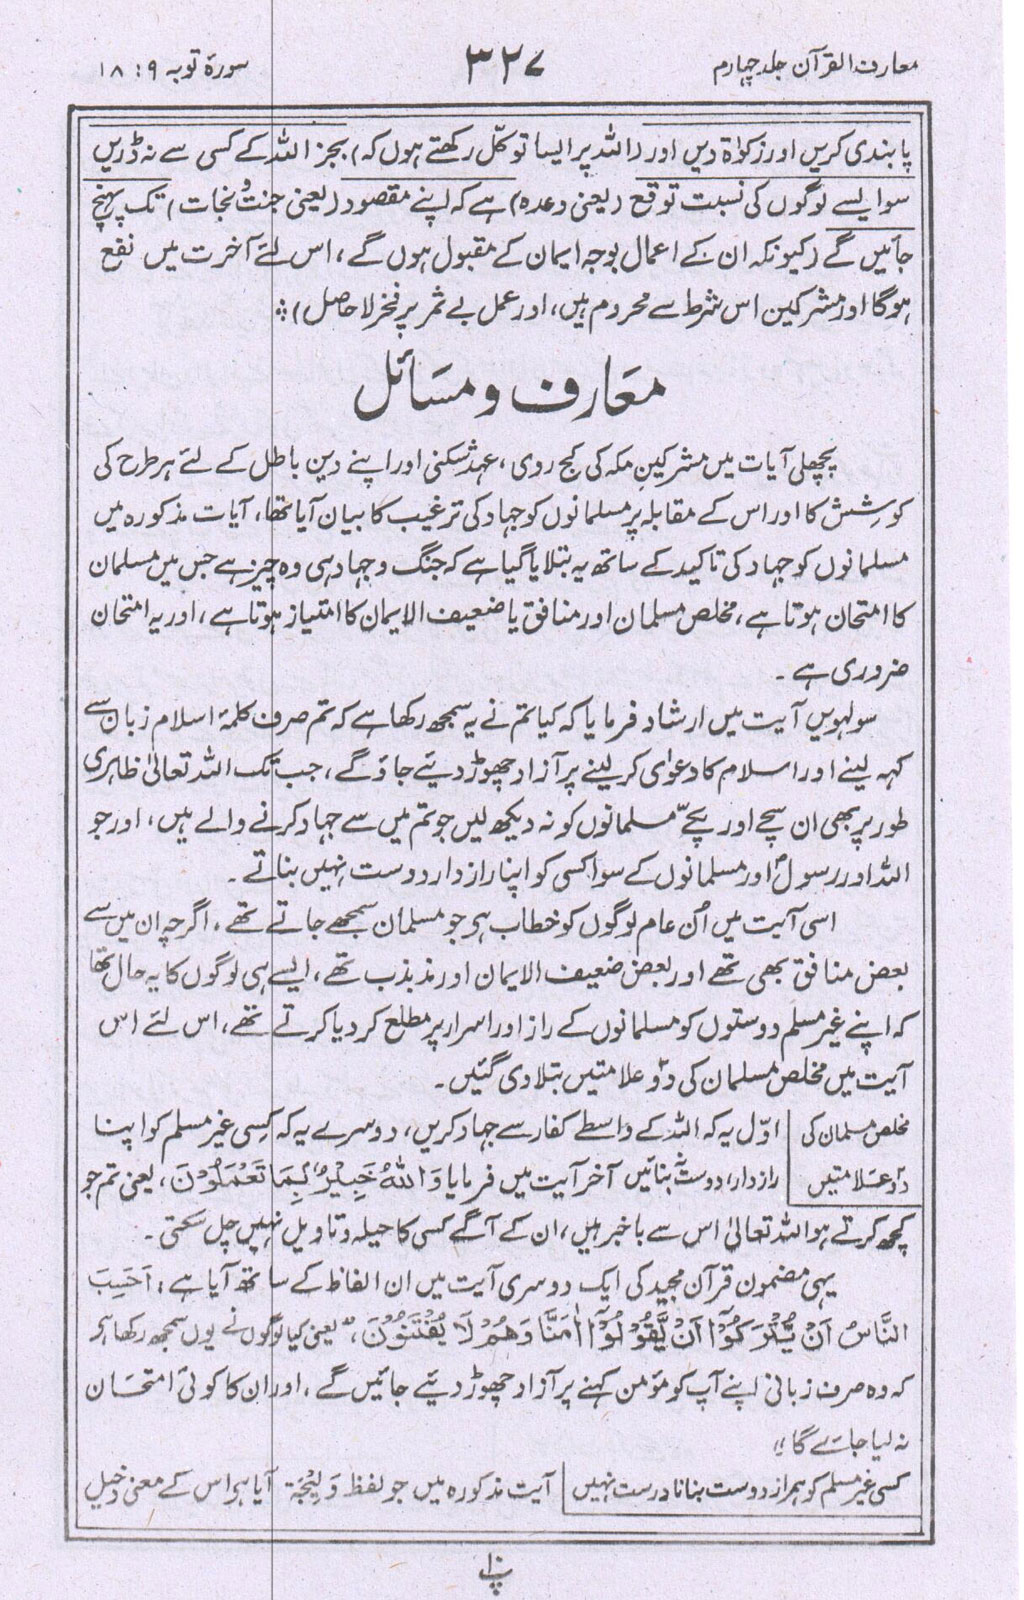 معارف القرآن جلد چہارم
۳۲۷
سورۃ توبہ ۹ : ۱۸
پابندی کریں اور زکوٰۃ دیں اور (اللہ پر ایسا توکّل رکھتے ہوں کہ) بجز اللہ کے کسی سے نہ ڈریں
سو ایسے لوگوں کی نسبت توقع (یعنی وعدہ) ہے کہ اپنے مقصود (یعنی جنت و نجات) تک پہنچ
جائیں گے (کیونکہ ان کے اعمال بوجہ ایمان کے مقبول ہوں گے، اس لئے آخرت میں نفع
ہوگا اور مشرکین اس شرط سے محروم ہیں، اور عمل بے ثمر پر فخر لا حاصل)
معارف و مسائل
پچھلی آیات میں مشرکینِ مکہ کی کج روی، عہد شکنی اور اپنے دینِ باطل کے لئے ہر طرح کی
کوشش کا اور اس کے مقابلہ پر مسلمانوں کو جہاد کی ترغیب کا بیان آیا تھا، آیات مذکورہ میں
مسلمانوں کو جہاد کی تاکید کے ساتھ یہ بتلایا گیا ہے کہ جنگ و جہاد ہی وہ چیز ہے جس میں مسلمان
کا امتحان ہوتا ہے، مخلص مسلمان اور منافق یا ضعیف الایمان کا امتیاز ہوتا ہے، اور یہ امتحان
ضروری ہے۔
سولہویں آیت میں ارشاد فرمایا کہ کیا تم نے یہ سمجھ رکھا ہے کہ تم صرف کلمۂ اسلام زبان سے
کہہ لینے اور اسلام کا دعوٰی کر لینے پر آزاد چھوڑ دیئے جاؤ گے، جب تک اللہ تعالیٰ ظاہری
طور پر بھی ان سچے اور پکّے مسلمانوں کو نہ دیکھ لیں جو تم میں سے جہاد کرنے والے ہیں، اور جو
اللہ اور رسولؐ اور مسلمانوں کے سوا کسی کو اپنا رازدار دوست نہیں بناتے۔
اسی آیت میں اُن عام لوگوں کو خطاب ہو جو مسلمان سمجھے جاتے تھے، اگرچہ ان میں سے
بعض منافق بھی تھے اور بعض ضعیف الایمان اور مذبذب تھے، ایسے ہی لوگوں کا یہ حال تھا
کہ اپنے غیر مسلم دوستوں کو مسلمانوں کے راز اور اسرار پر مطلع کر دیا کرتے تھے، اس لئے اس
آیت میں مخلص مسلمان کی دو علامتیں بتلا دی گئیں۔
مخلص مسلمان کی
دو علامتیں
اوّل یہ کہ اللہ کے واسطے کفار سے جہاد کریں، دوسرے یہ کہ کسی غیر مسلم کو اپنا
رازدار، دوست نہ بنائیں آخر آیت میں فرمایا وَاللّٰهُ خَبِيْرٌۢ بِمَا تَعْمَلُوْنَ، یعنی تم جو
کچھ کرتے ہو اللہ تعالیٰ اس سے باخبر ہیں، ان کے آگے کسی کا حیلہ و تاویل نہیں چل سکتی۔
یہی مضمون قرآن مجید کی ایک دوسری آیت میں ان الفاظ کے ساتھ آیا ہے، اَحَسِبَ
النَّاسُ اَنْ يُّتْرَكُوْٓا اَنْ يَّقُوْلُوْٓا اٰمَنَّا وَهُمْ لَا يُفْتَنُوْنَ، "یعنی کیا لوگوں نے یوں سمجھ رکھا ہو
کہ وہ صرف زبانی اپنے آپ کو مؤمن کہنے پر آزاد چھوڑ دیئے جائیں گے، اور ان کا کوئی امتحان
نہ لیا جاے گا"
کسی غیر مسلم کو ہمراز دوست بنانا درست نہیں
آیت مذکورہ میں جو لفظ وَلِيْجَة آیا ہو اس کے معنی دخیل